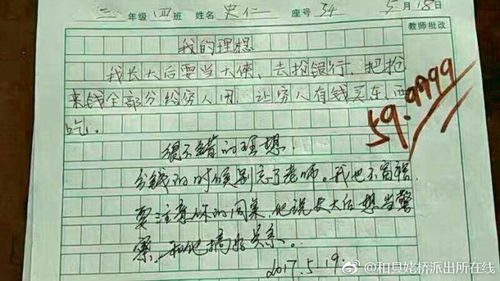 三年级 四班 姓名 史仁 座号 34 5月18日
教师批改
我的理想
我长大后要当大侠、去抢银行,把抢
来钱全部分给穷人用,让穷人有钱买东西
吃。
59.9999
很不错的理想
分钱的时候别忘了老师。我也不富裕
要注意你的同桌,他说长大后想当警
察,和他搞好关系。
2017.5.19.
@和县姥桥派出所在线